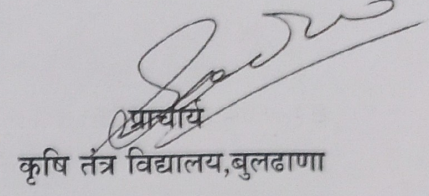 प्राचार्य
कृषि तंत्र विद्यालय,बुलढाणा